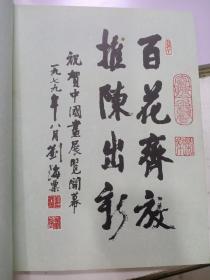 百花齊放
推陳出新
祝賀中國畫展覽開幕
一九七九年八月劉海粟